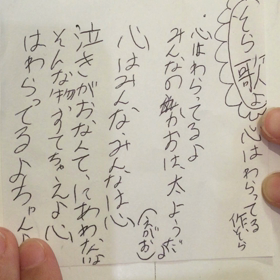 そら歌 よ心はわらってる
作そら
心はわらってるよ
みんなのかおは太ようだよ
(えがお)
心はみんなみんなは心
泣きがおなんて、にあわないよ
そんな物すてちゃえよ心
はわらってるよちゃんと